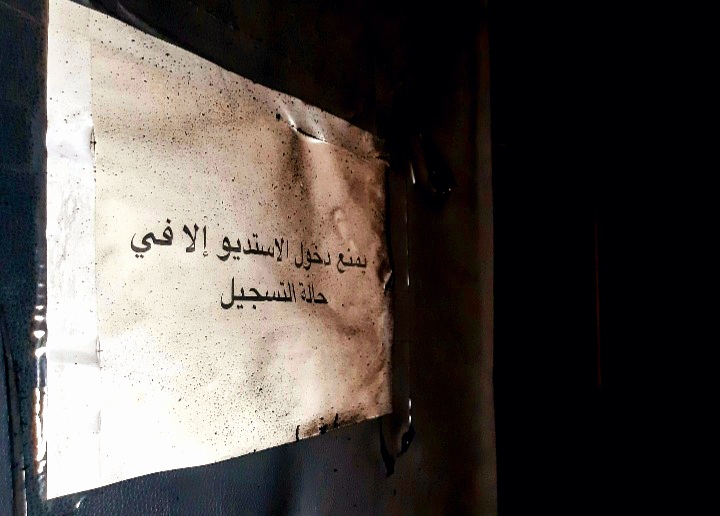 يمنع دخول الاستديو إلا في
حالة التسجيل